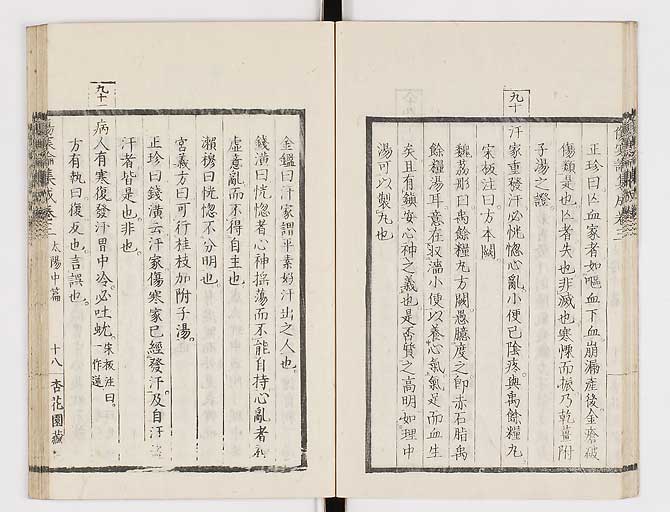 正珍曰亡血家者如嘔血下血崩漏產後金瘡破
傷類是也亡者失也非滅也寒慄而振乃乾薑附
子湯之證
九十
汗家重發汗必恍惚心亂小便已陰疼與禹餘糧丸
宋板注曰方本闕
魏荔彤曰禹餘糧丸方闕愚臆度之卽赤石脂禹
餘糧湯耳意在收濇小便以養心氣氣足而血生
矣且有鎮安心神之義也是否質之高明如理中
湯可以製丸也
金鑑曰汗家謂平素好汗出之人也
錢潢曰恍惚者心神搖蕩而不能自持心亂者
虛意亂而不得自主也
瀨穆曰恍惚不分明也
宮義方曰可行桂枝加附子湯
正珍曰錢潢云汗家傷寒家已經發汗及自汗
汗者皆是也非也
九十一
病人有寒復發汗胃中冷必吐蚘宋板注曰
一作逆
方有執曰復反也言誤也
傷寒論集成卷二 太陽中篇 十八 杏花園藏